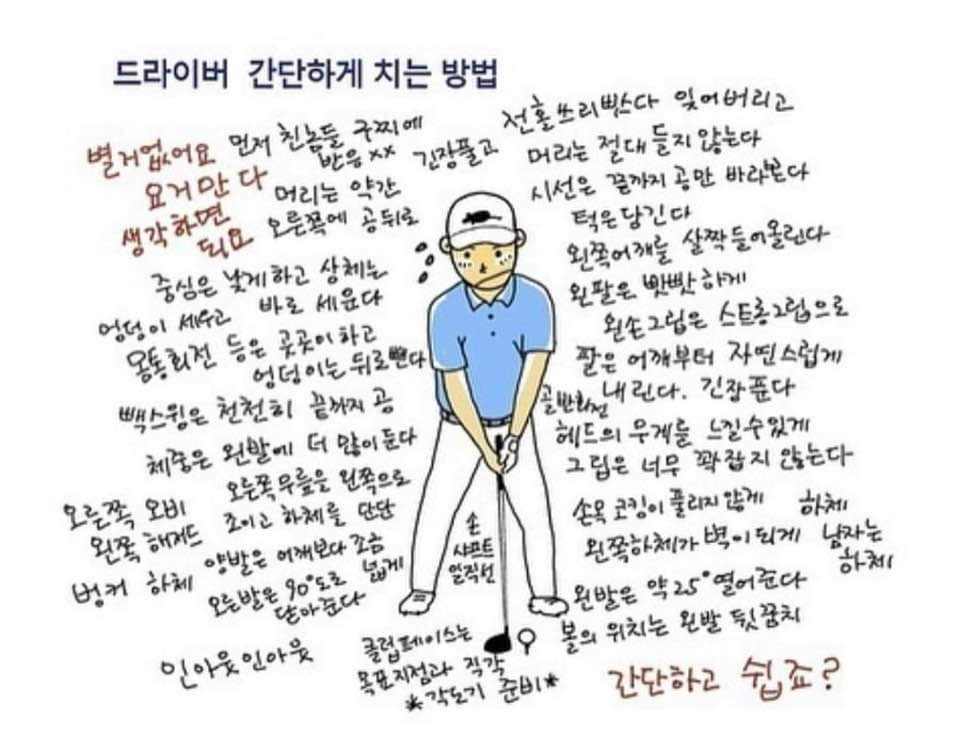 드라이버 간단하게 치는 방법
별거없어요
요거만 다
생각하면
되요
먼저 친놈들 구찌에
반응xx
긴장풀고
머리는 약간
오른쪽에 공뒤로
중심은 낮게하고 상체는
바로 세운다
엉덩이 세우고
몸통회전 등은 곳곳이하고
엉덩이는 뒤로뺀다
빽스윙은 천천히 끝까지 공
체중은 왼발에 더 많이둔다
오른쪽무릎을 왼쪽으로
조이고 하체를 단단
오른쪽 오비
왼쪽 해저드
벙커 하체
양발은 어깨보다 조금
넓게
오른발은 90°도로
닫아준다
인아웃인아웃
전홀쓰리빳다 잊어버리고
머리는 절대 들지 않는다
시선은 끝까지 공만 바라본다
턱은당긴다
왼쪽어깨를 살짝들어올린다
왼팔은 빳빳하게
왼손그립은 스트롱그립으로
팔은 어깨부터 자연스럽게
내린다. 긴장푼다
골반회전
헤드의 무게를 느낄수있게
그립은 너무 꽉잡지 않는다
손목 코킹이 풀리지않게
왼쪽하체가 벽이 되게
하체
남자는
하체
왼발은 약25°열어준다
볼의 위치는 왼발 뒷꿈치
손
샤프트
일직선
클럽페이스는
목표지점과 직각
*각도기 준비*
간단하고 쉽죠?